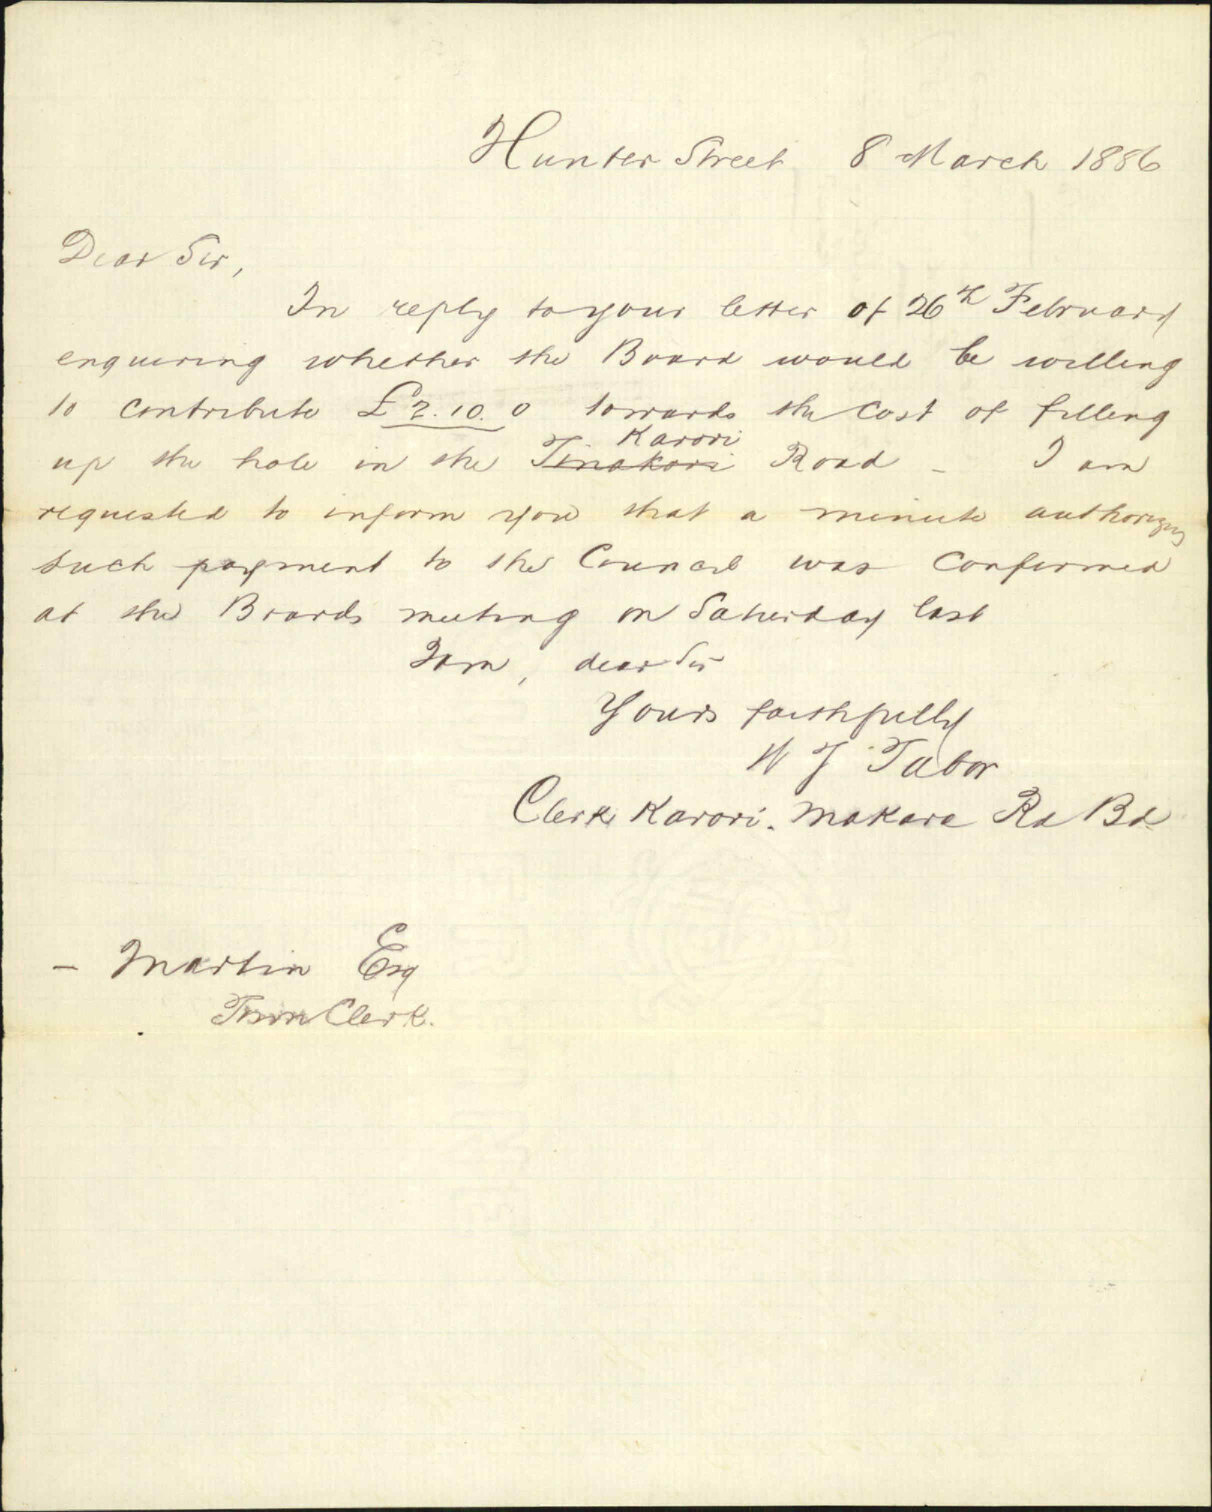 Hunter Street 8 March 1886
Dear Sir,
In reply to your letter of 26th February
enquiring whether the Board would be willing
to contribute £2.10.0 towards the cost of filling
Karori
up the hole in the Tinakori Road - I am
requested to inform you that a minute authorizing
such payment to the Council was confirmed
at the Boards meeting on Saturday last
I am, dear Sir
Yours faithfully
W J Tabor
Clerk Karori. Makara Rd Bd
- Martin Esq
Town Clerk.